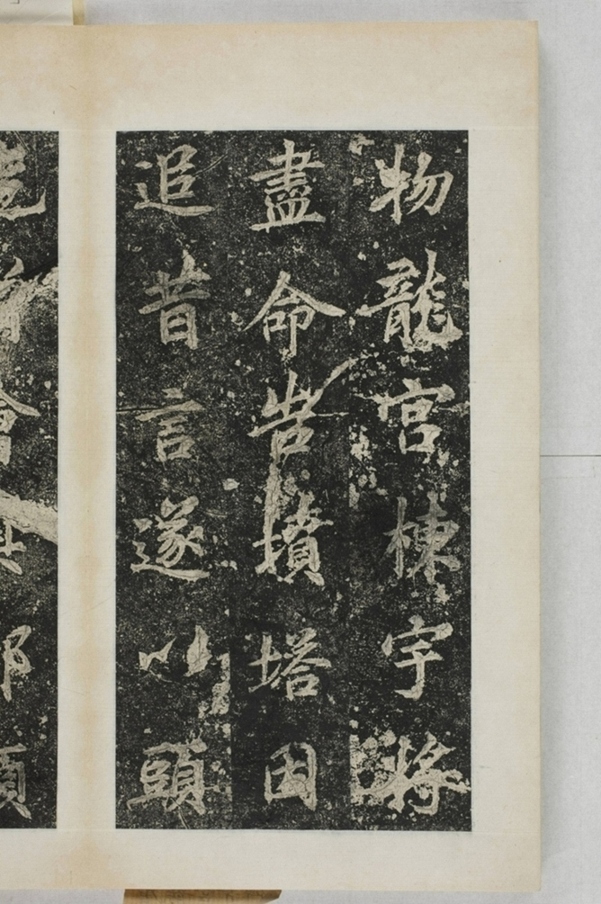 物龍宮棟宇將
盡命告墳塔因
追昔言遂以頭